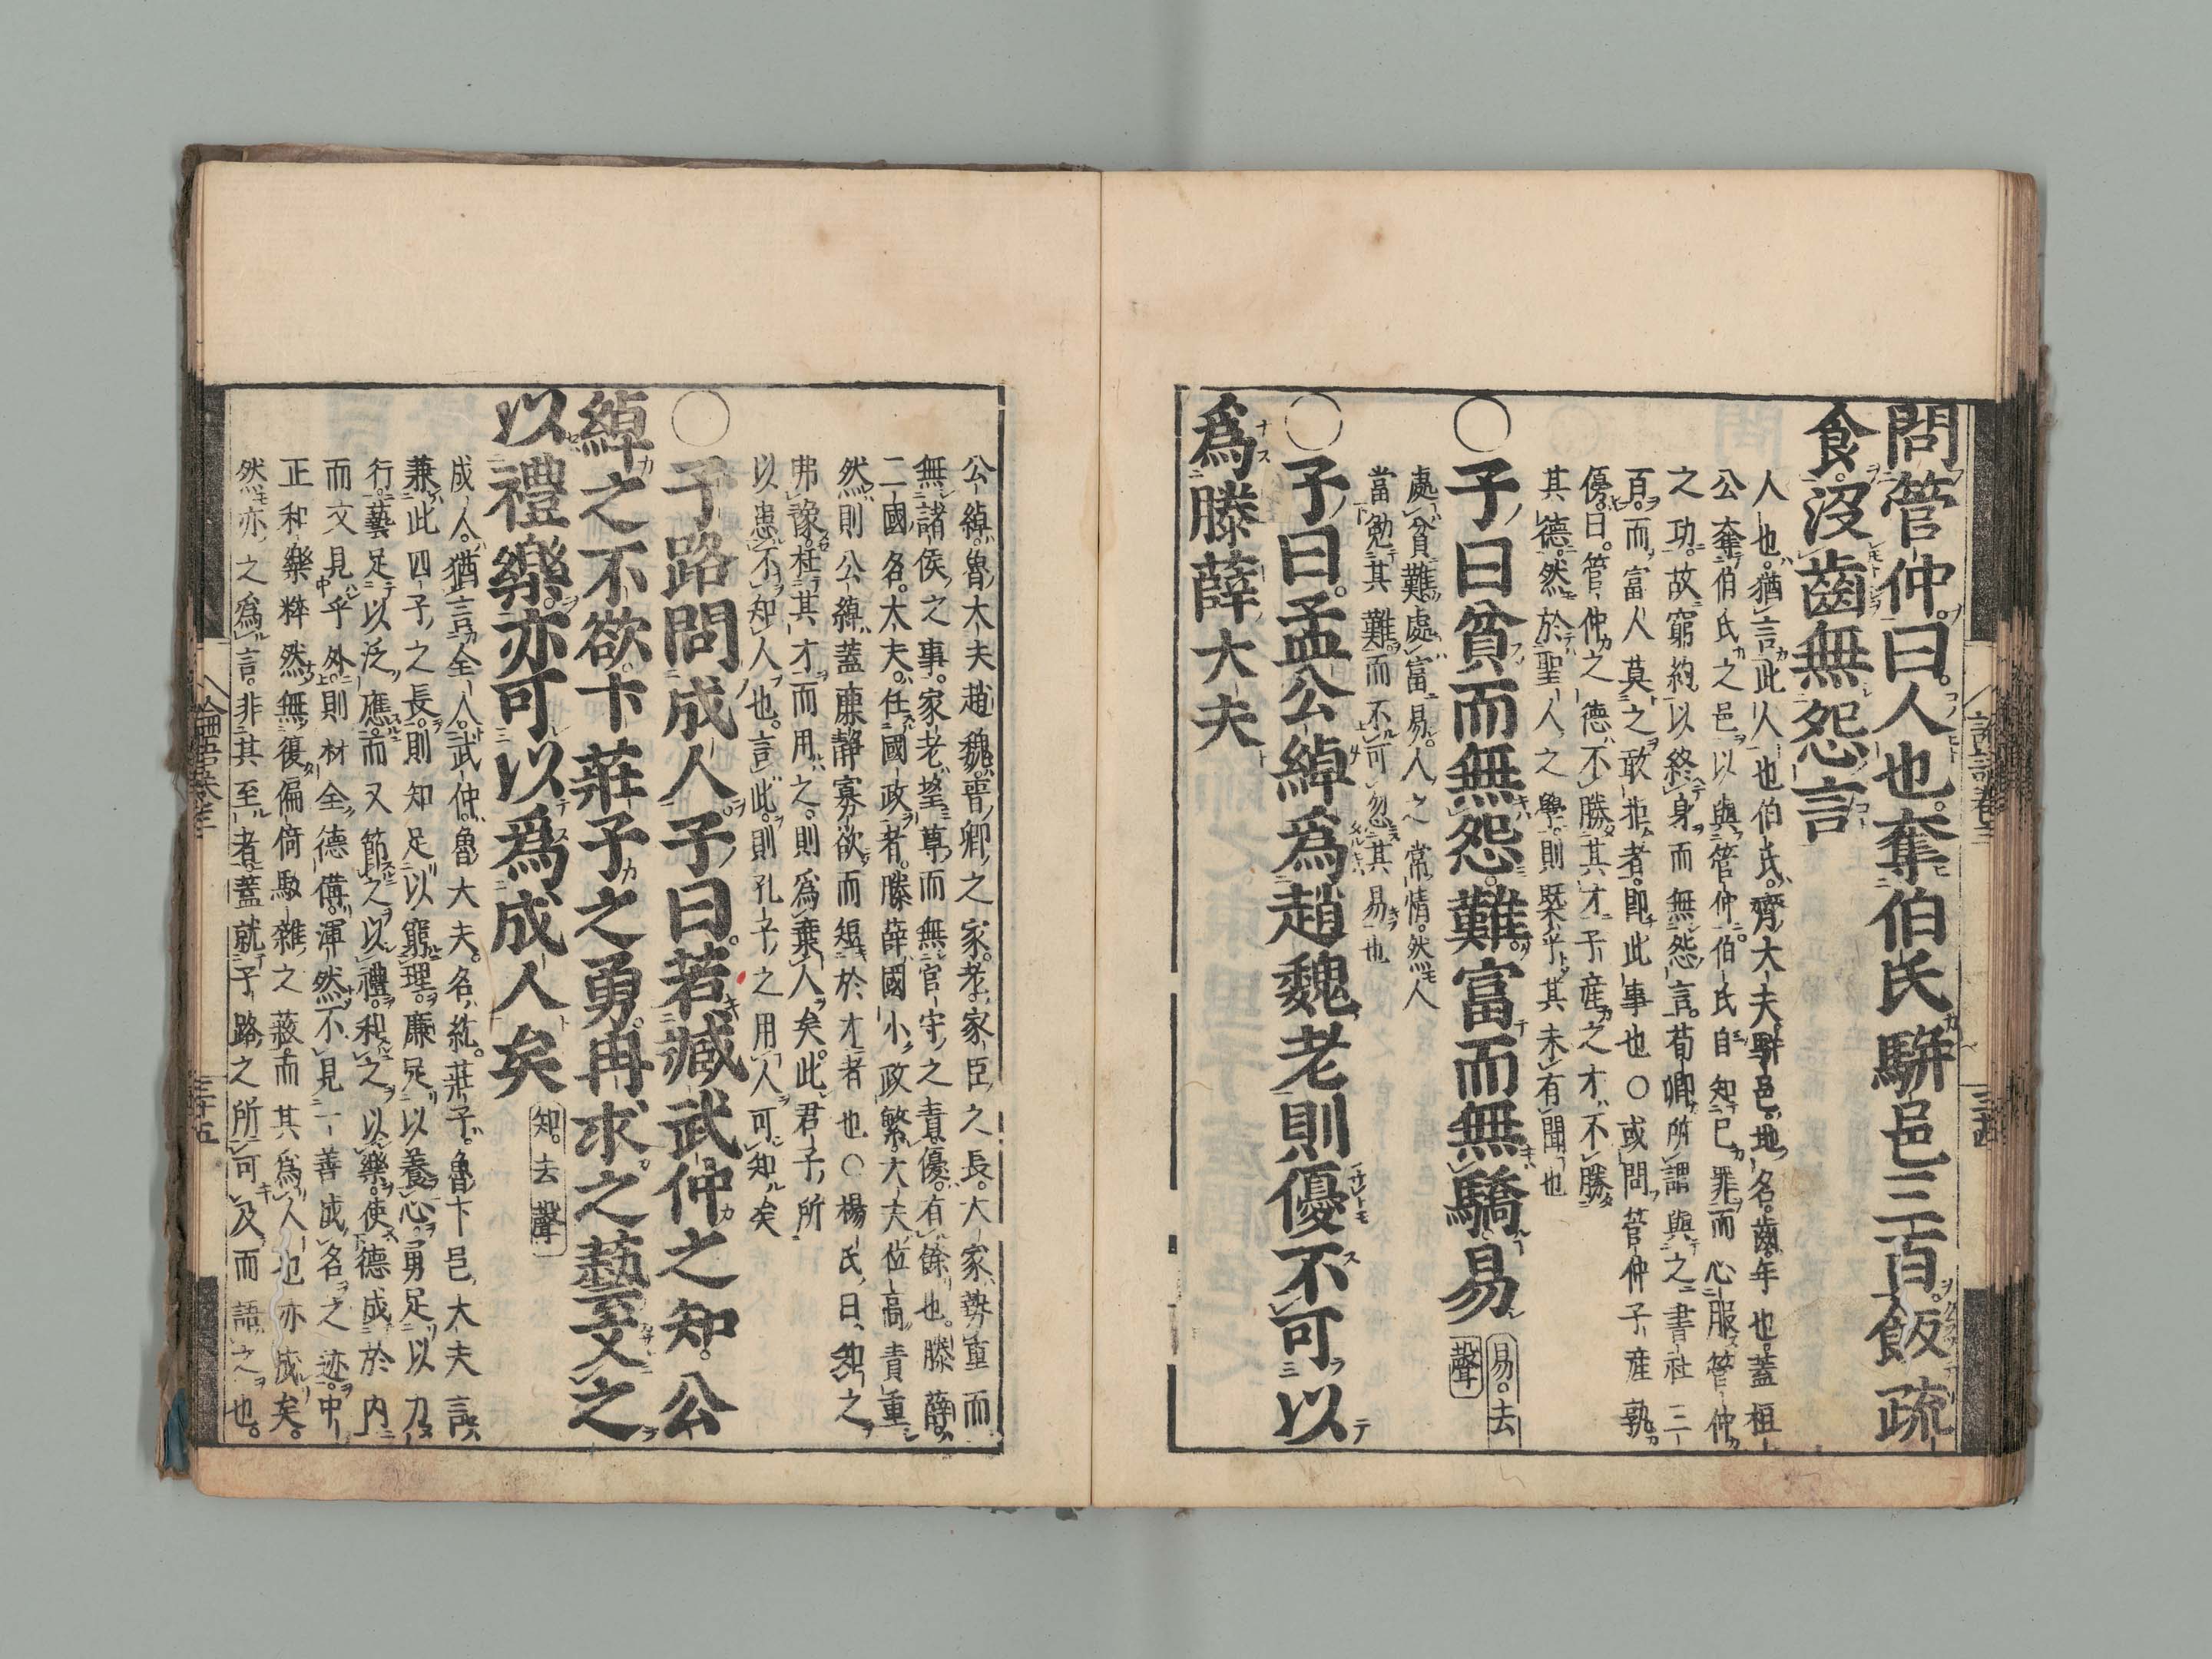 問管仲。曰人也。奪伯氏駢邑三百。飯疏
食。沒齒無怨言
人也。猶言此人也伯氏。齊大夫。駢邑。地名。齒。年也。蓋桓
公奪伯氏之邑。以與管仲。伯氏自知已罪。而心服管仲
之功。故窮約以終身。而無怨言。荀卿所謂與之書社三
百。而富人莫之敢拒者。卽此事也○或問管仲子產孰
優。曰。管仲之德。不勝其才。子產之才。不勝
其德。然於聖人之學。則槩乎其未有聞也
○子曰貧而無怨。難。富而無驕。易
易。去
聲
處貧難。處富易。人之常情。然人
當勉其難。而不可忽其易也
○子曰。孟公綽爲趙魏老則優。不可以
爲滕薛大夫
公綽。魯大夫趙魏。晉卿之家。老。家臣之長。大家勢重而
無諸侯之事。家老望尊。而無官守之責。優。有餘也。滕薛。
二國名。大夫。任國政者。滕薛國小政繁。大夫位高責重。
然則公綽蓋廉靜寡欲而短於才者也○楊氏曰。知之
弗豫。枉其才而用之。則爲棄人矣。此君子所
以患不知人也。言此。則孔子之用人可知矣
○子路問成人。子曰。若臧武仲之知。公
綽之不欲。卞莊子之勇。冉求之藝。文之
以禮樂。亦可以爲成人矣
知。去聲
成人。猶言全人。武仲。魯大夫。名紇。莊子。魯卞邑大夫言
兼此四子之長。則知足以窮理。廉足以養心。勇足以力
行。藝足以泛應。而又節之以禮。和之以樂。使德成於內。
而文見乎外。則材全德備。渾然不見一善成名之迹。中
正和樂粹然無復偏倚駁雜之蔽。而其爲人也亦成矣。
然亦之爲言。非其至者。蓋就子路之所可及而語之也。
論語卷三
三十五